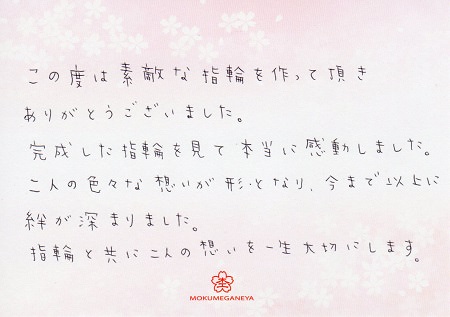 この度は素敵な指輪を作って頂き
ありがとうございました。
完成した指輪を見て本当に感動しました。
二人の色々な想いが形となり、今まで以上に
絆が深まりました。
指輪と共に二人の想いを一生大切にします。
MOKUMEGANEYA